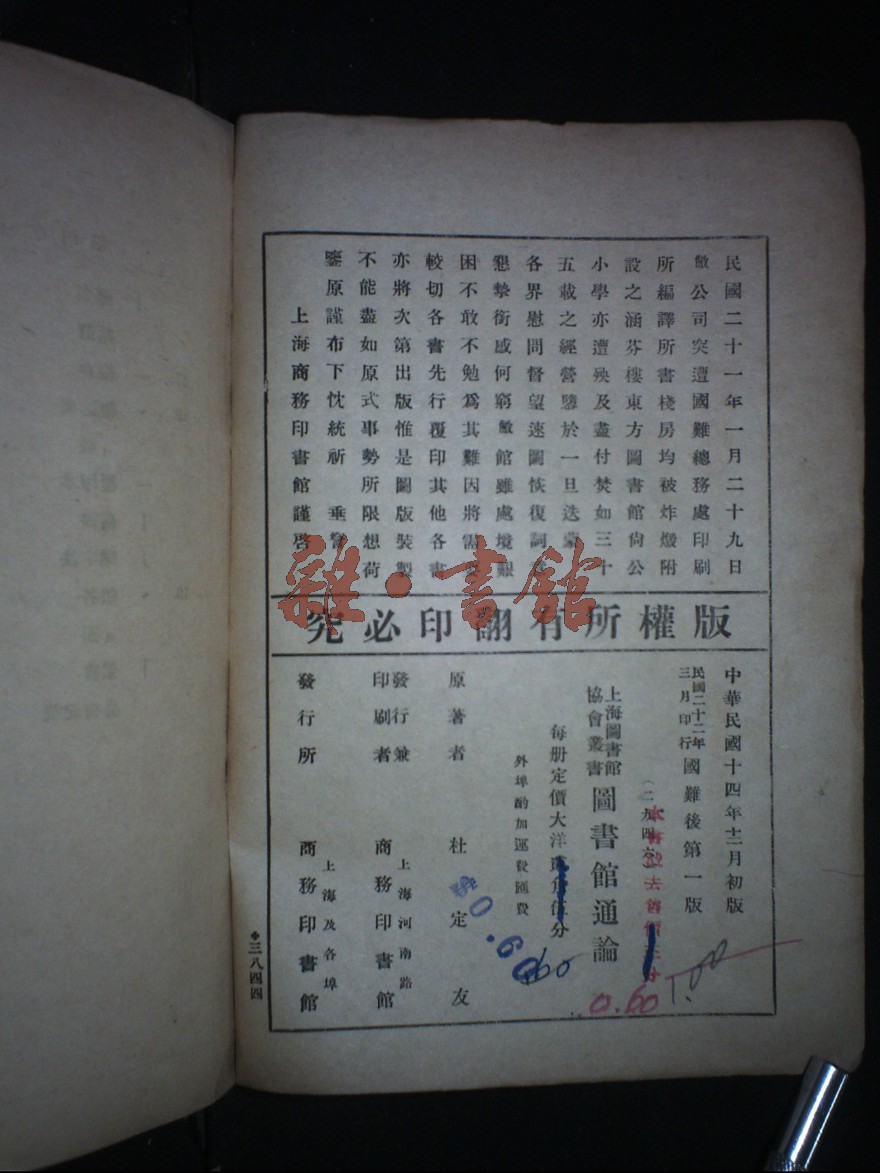 民國二十一年一月二十九日
敝公司突遭國難總務處印刷
所編譯所書棧房均被炸燬附
設之涵芬樓東方圖書館尙公
小學亦遭殃及盡付焚如三十
五載之經營隳於一旦迭蒙
各界慰問督望速圖恢復詞意
懇摯銜感何窮敝館雖處境艱
困不敢不勉爲其難因將需要
較切各書先行覆印其他各書
亦將次第出版惟是圖版裝製
不能盡如原式事勢所限想荷
鑒原謹布下忱統祈 垂詧
上海商務印書館謹啓
版權所有翻印必究
中華民國十四年十二月初版
民國二十二年三月印行 國難後第一版
上海圖書館協會叢書 圖書館通論
每册定價大洋 分
外埠酌加運費匯費
原著者 杜定友
發行兼印刷者 上海河南路 商務印書館
發行所 上海及各埠 商務印書館
三八四四
雜·書館
$0.60
0.60
1.00